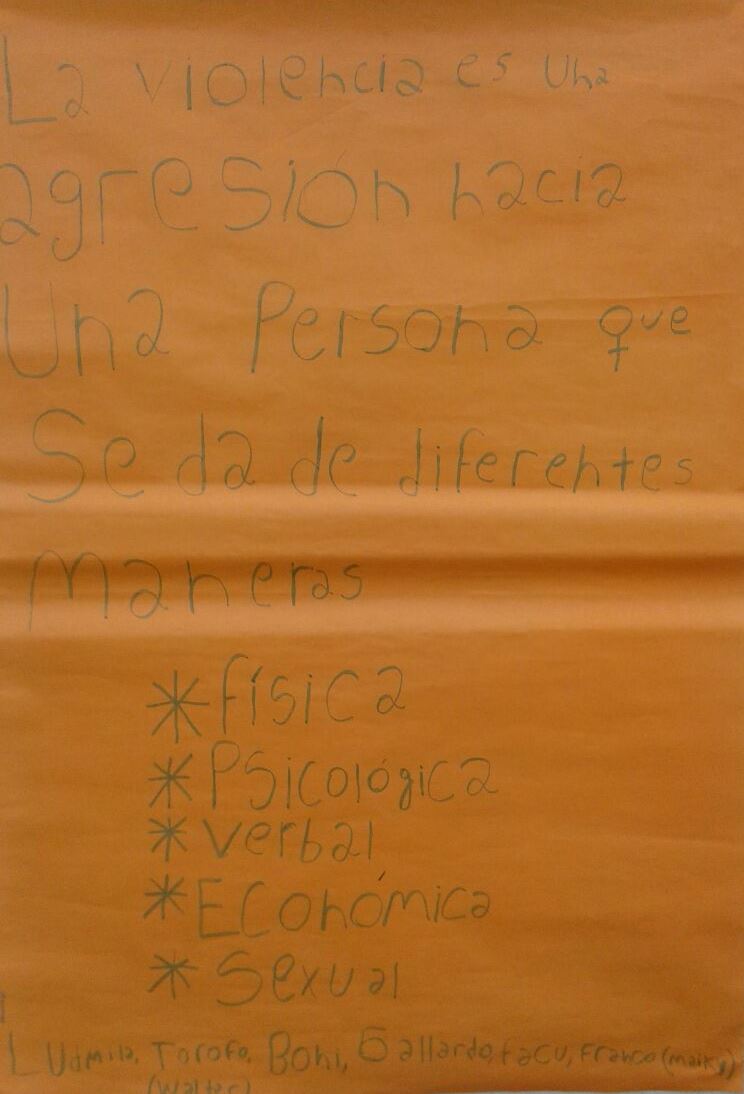 La violencia es una
agresión hacia
Una Persona que
Se da de diferentes
Maneras
* física
* Psicológica
* verbal
* Económica
* Sexual
Ludmila, Torofo, Boni, Gallardo, facu, Franco (maiky)
(Walter)